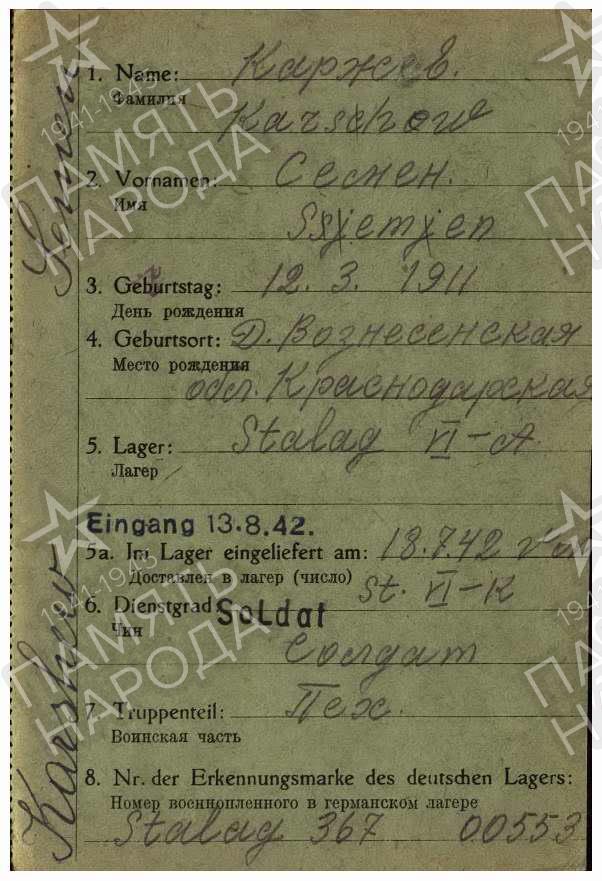 1. Name: Каржев.
Фамилия
Karschew
2. Vornamen: Семен.
Имя
Ssjemjen
3. Geburtstag: 12. 3. 1911
День рождения
4. Geburtsort: Д. Вознесенская
Место рождения
обл. Краснодарская
5. Lager: Stalag VI-A.
Лагер
Eingang 13.8.42.
5a. Im Lager eingeliefert am: 18.7.42 von
Доставлен в лагер (число) St. VI-K
6. Dienstgrad: Soldat
Чин
Солдат
7. Truppenteil: Пех.
Воинская часть
8. Nr. der Erkennungsmarke des deutschen Lagers:
Номер военнопленного в германском лагере
Stalag 367 00553
Karschew
1941-1945
ПАМЯТЬ
НАРОДА